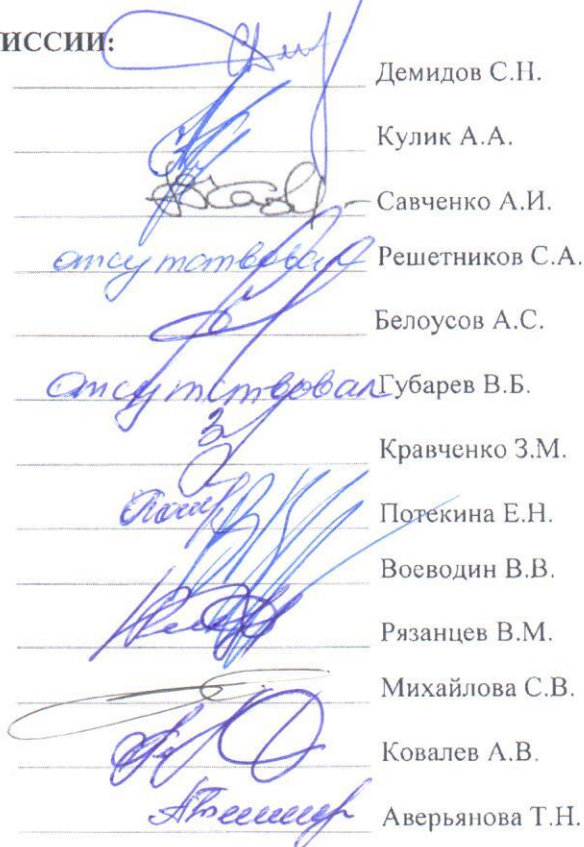 ИССИИ:
Демидов С.Н.
Кулик А.А.
Савченко А.И.
отсутствовал Решетников С.А.
Белоусов А.С.
отсутствовал Губарев В.Б.
Кравченко З.М.
Потекина Е.Н.
Воеводин В.В.
Рязанцев В.М.
Михайлова С.В.
Ковалев А.В.
Аверьянова Т.Н.